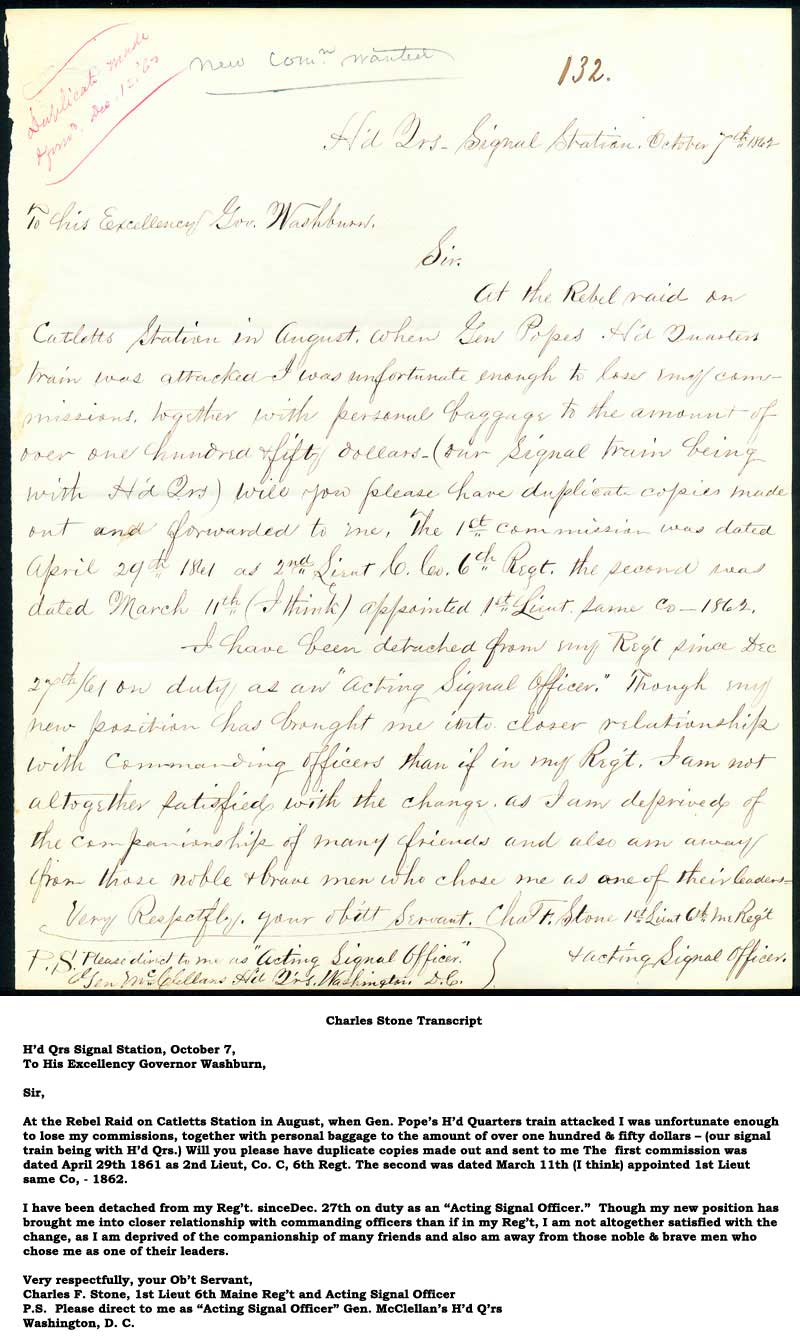 Duplicate made
Dec. 12. '62
New Comn wanted
132.
H'd Qrs - Signal Station. October 7th 1862
To his Excellency Gov. Washburn.
Sir.
At the Rebel raid on
Catletts Station in August. when Gen Popes H'd Quarters
train was attacked I was unfortunate enough to lose my com-
missions, together with personal baggage to the amount of
over one hundred & fifty dollars - (our Signal train being
with H'd Qrs) will you please have duplicate copies made
out and forwarded to me. The 1st commission was dated
April 29th 1861 as 2nd Lieut C. Co. 6th Regt. the second was
dated March 11th (I think) appointed 1st Lieut. same Co - 1862.
I have been detached from my Reg't since Dec
27th/61 on duty as an "Acting Signal Officer." Though my
new position has brought me into closer relationship
with Commanding Officers than if in my Reg't. I am not
altogether satisfied with the change. as I am deprived of
the companionship of many friends and also am away
from those noble & brave men who chose me as one of their leaders -
Very Respectfly. your ob'dtt Servant. Chas F. Stone 1st Lieut 6th Me Reg't
& acting Signal Officer.
P.S. Please direct to me as "Acting Signal Officer."
Gen McClellans H'd Q'rs. Washington D.C.
Charles Stone Transcript
H'd Qrs Signal Station, October 7,
To His Excellency Governor Washburn,
Sir,
At the Rebel Raid on Catletts Station in August, when Gen. Pope's H'd Quarters train attacked I was unfortunate enough
to lose my commissions, together with personal baggage to the amount of over one hundred & fifty dollars – (our signal
train being with H'd Qrs.) Will you please have duplicate copies made out and sent to me The  first commission was
dated April 29th 1861 as 2nd Lieut, Co. C, 6th Regt. The second was dated March 11th (I think) appointed 1st Lieut
same Co, - 1862.
I have been detached from my Reg't. sinceDec. 27th on duty as an "Acting Signal Officer."  Though my new position has
brought me into closer relationship with commanding officers than if in my Reg't, I am not altogether satisfied with the
change, as I am deprived of the companionship of many friends and also am away from those noble & brave men who
chose me as one of their leaders.
Very respectfully, your Ob't Servant,
Charles F. Stone, 1st Lieut 6th Maine Reg't and Acting Signal Officer
P.S.  Please direct to me as "Acting Signal Officer" Gen. McClellan's H'd Q'rs
Washington, D. C.